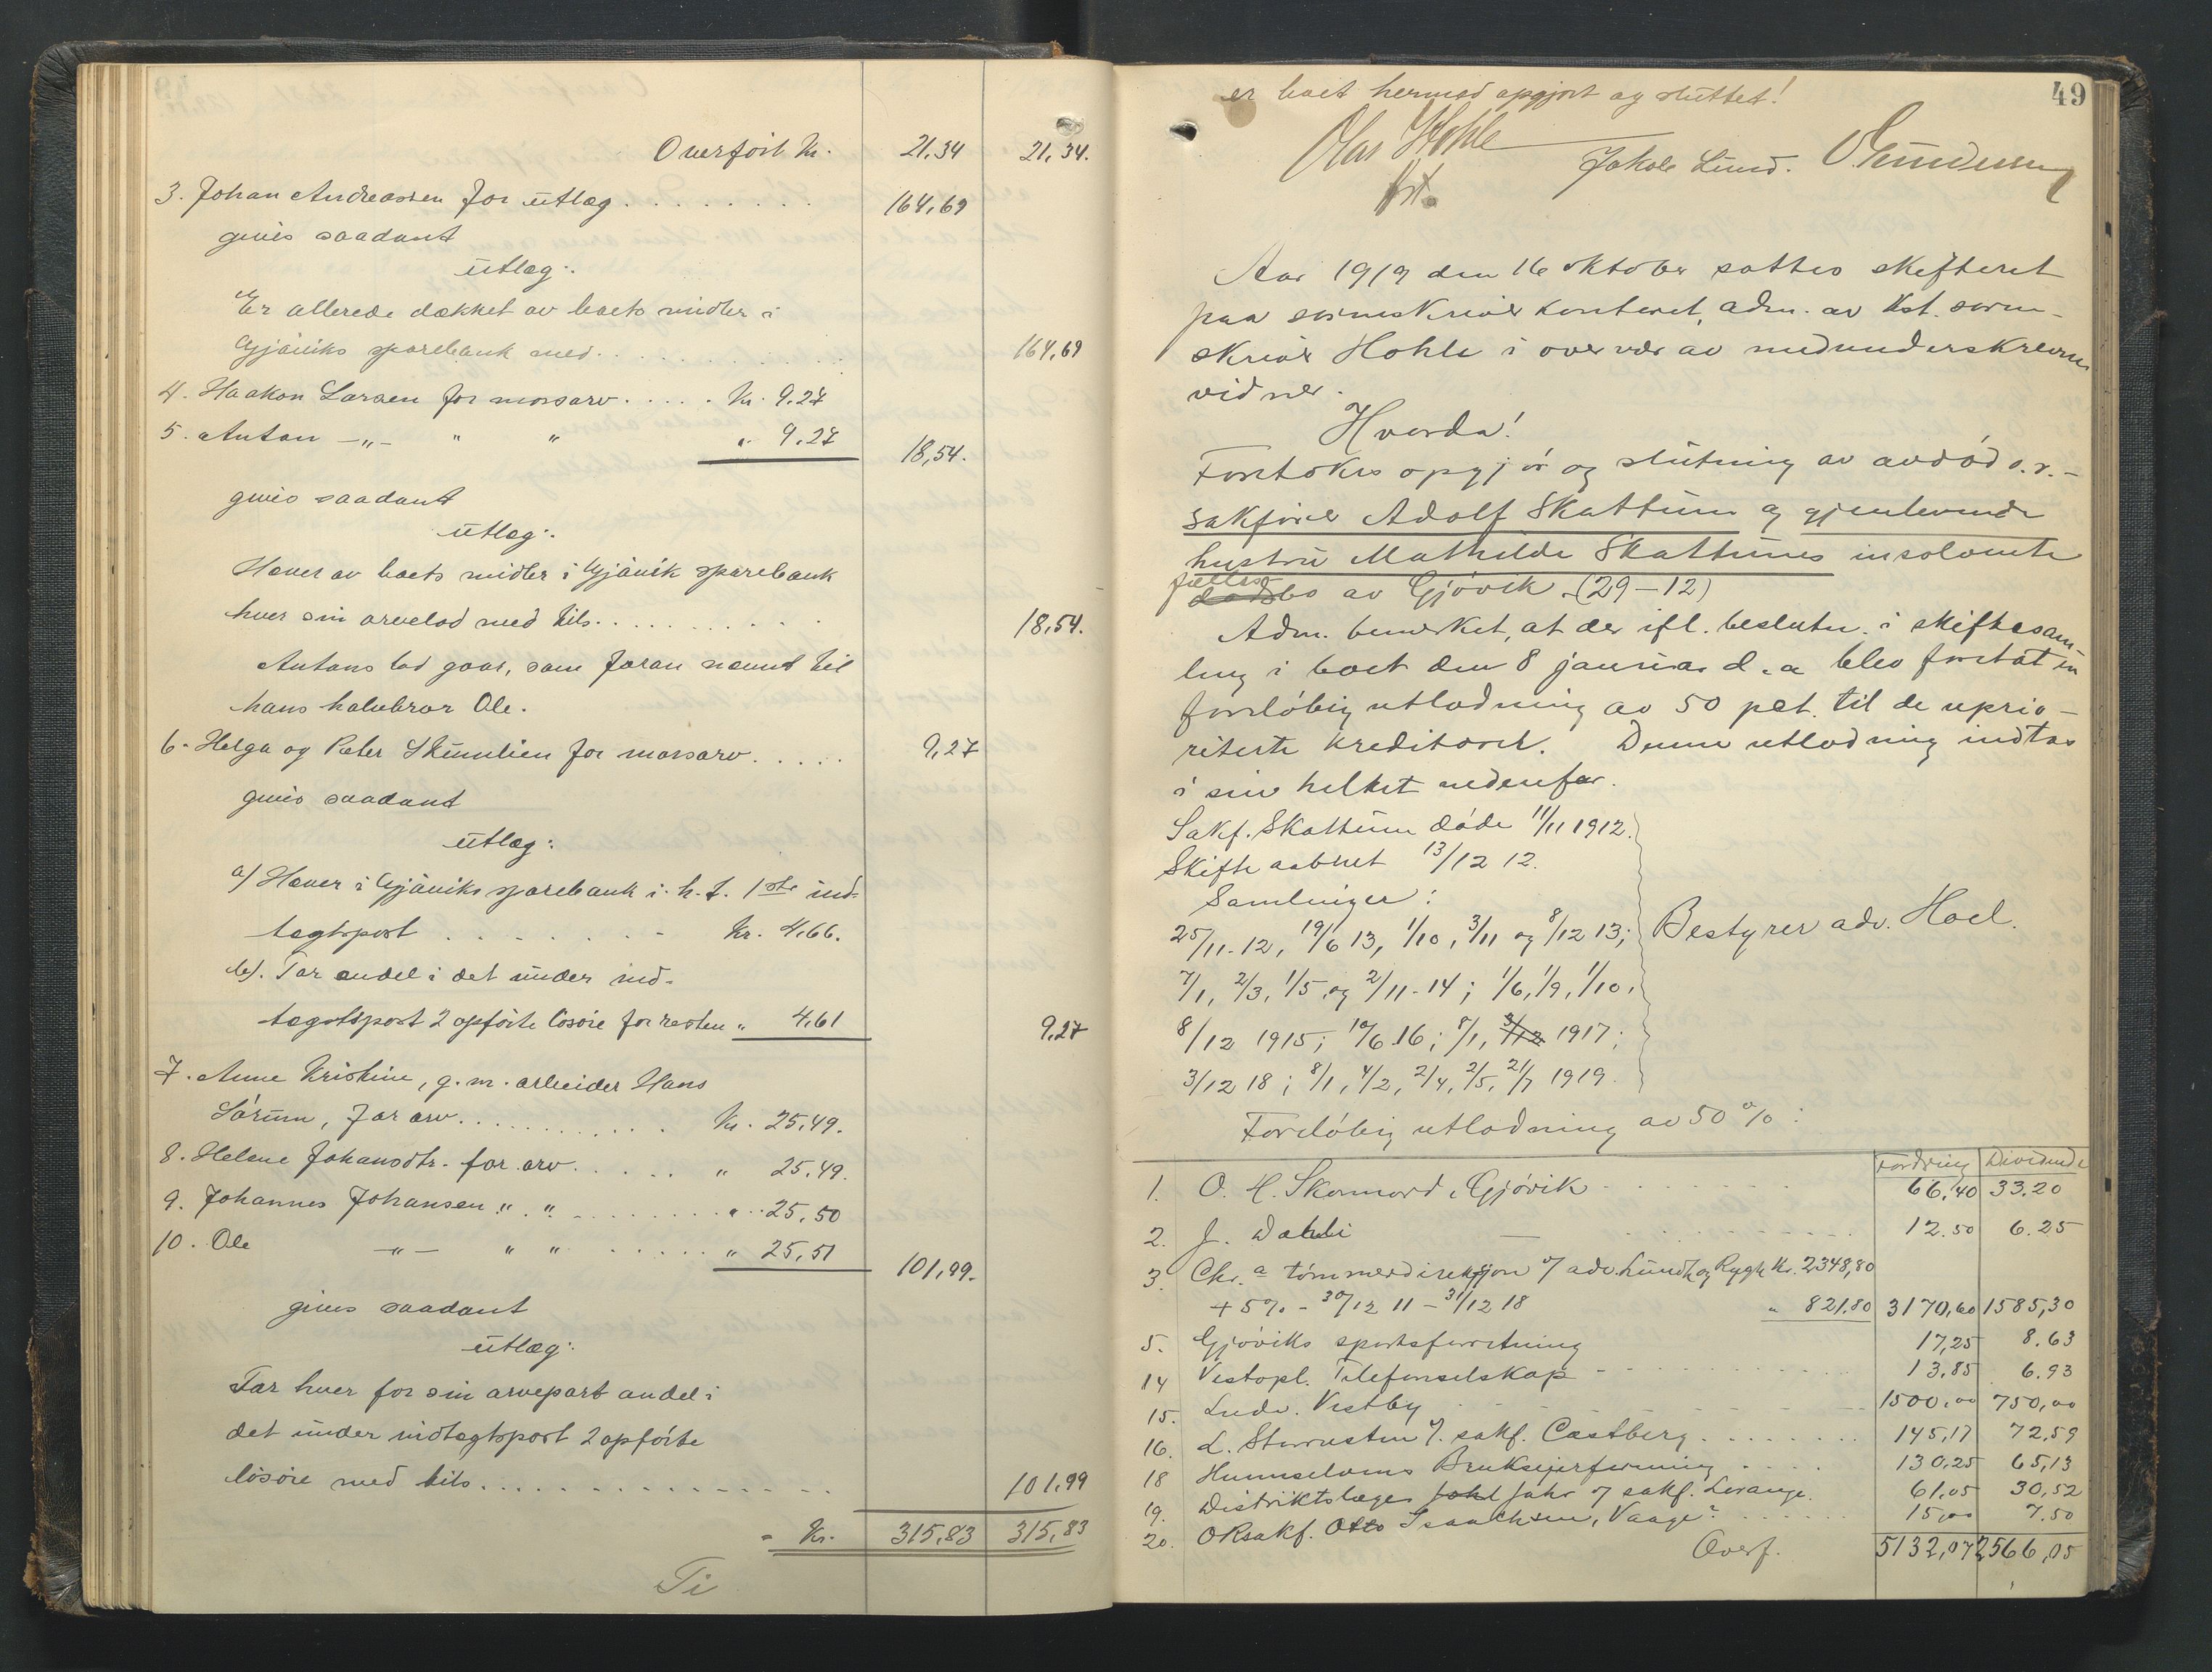 Overført Kr. 21,34 21,34.
3. Johan Andreassen for utlæg . . . . . . . . 164,69
givis saadant
utlæg:
Er allerede dækket av boets midler i
Gjøviks sparebank med . . . . . . . . 164,69
4. Haakon Larsen for morsarv . . . . . Kr. 9.27
5. Anton —„— „ „ „ 9.27 18,54.
givis saadant
utlæg:
Hæver av boets midler i Gjøvik sparebank
hver sin arvelod med tils. . . . . . . . . . 18,54.
Antons lod gaar, som foran nævnt til
hans halvbror Ole.
6. Helga og Peter Skumlien for morsarv . . . . . 9,27
givis saadant
utlæg:
a) Hæver i Gjøviks sparebank i. h. t. 1ste ind-
tægtspost . . . . . . . Kr. 4,66.
b). Tar andel i det under ind-
tægtspost 2 opførte løsøre for resten „ 4,61 9,27
7. Anne Kristine, g. m. arbeider Hans
Sørum, for arv . . . . . . . . . . . Kr. 25,49.
8. Helene Johansdtr. for arv . . . . . „ 25,49.
9. Johannes Johansen „ „ . . . . . . . „ 25,50
10. Ole —„— „ „ . . . . . . „ 25,51 101,99.
givis saadant
utlæg:
Tar hver for sin arvepart andel i
det under indtægtspost 2 opførte
løsøre med tils. . . . . . . . . . . . . . 101,99
= Kr. 315,83 315,83
Ti
49
er boet hermed opgjort og sluttet!
Olas Hohle Jakob Lund. O. Gundersen
kst.
Aar 1919 den 16 oktober sattes skifteret
paa sorenskriverkontoret, adm. av kst. soren-
skriver Hohle i overvær av medunderskrevne
vidner.
Hvorda!
Foretokes opgjør og slutning av avdød o.r.-
sakfører Adolf Skattum og gjenlevende
hustru Mathilde Skattums insolvente
fælles
dødsbo av Gjøvik. (29–12)
Adm. bemerket, at der ifl. beslutn. i skiftesam-
ling i boet den 8 januar d. a blev foretat en
foreløbig utlodning av 50 pct. til de uprio-
riterte kreditorer. Denne utlodning indtas
i sin helhet nedenfor.
Sakf. Skattum døde 11/11 1912.
Skifte aabnet 13/12 12.
Samlinger:
25/11-12, 19/6 13, 1/10, 3/11 og 8/12 13; Bestyrer adv. Hoel.
7/1, 2/3, 1/5 og 2/11-14; 1/6, 1/9, 1/10,
8/12 1915; 10/6 16; 8/1, 3/12 1917;
3/12 18; 8/1, 4/2, 2/4, 2/5, 21/7 1919.
Foreløbig utlodning av 50 %:
Fordring Dividende
1. O. H. Skonnord, Gjøvik . . . . . . . 66,40 33.20
2. J. Dahli — . . . . . . . . 12.50 6.25
3. Chr.a tømmerdireksjon v/ adv. Lundh og Rygh Kr. 2348,80
+ 5% - 30/12 11 – 31/12 18 „ 821.80 3170,60 1585,30
5. Gjøviks sportsforretning 17,25 8.63
14 Vestopl. Telefonselskap . . . . . . . 13.85 6.93
15. Ludv. Vestby . . . . . . . . . 1500,00 750,00
16. L. Stensrusten v/ sakf. Castberg . . . . . . . 145,17 72,59
18 Hunnselvens Brukseierforening . . . . 130,25 65,13
19. Distriktslæge Johl Jahr v/ sakf. Levange. 61,05 30,52
20. ORsakf. Otto Isaachsen, Vaage? . . . . . . 15,00 7.50
Overf. 5132,07 2566,05